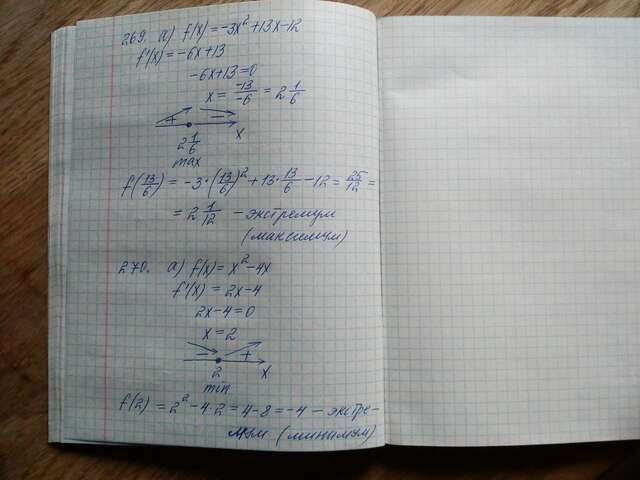 269. а) f(x) = -3x² + 13x - 12
f'(x) = -6x + 13
-6x + 13 = 0
x = -13/-6 = 2 1/6
+ -
2 1/6 x
max
f(13/6) = -3 · (13/6)² + 13 · 13/6 - 12 = 25/12 =
= 2 1/12 - экстремум
(максимум)
270. а) f(x) = x² - 4x
f'(x) = 2x - 4
2x - 4 = 0
x = 2
- +
2 x
min
f(2) = 2² - 4 · 2 = 4 - 8 = -4 - экстре-
мум (минимум)